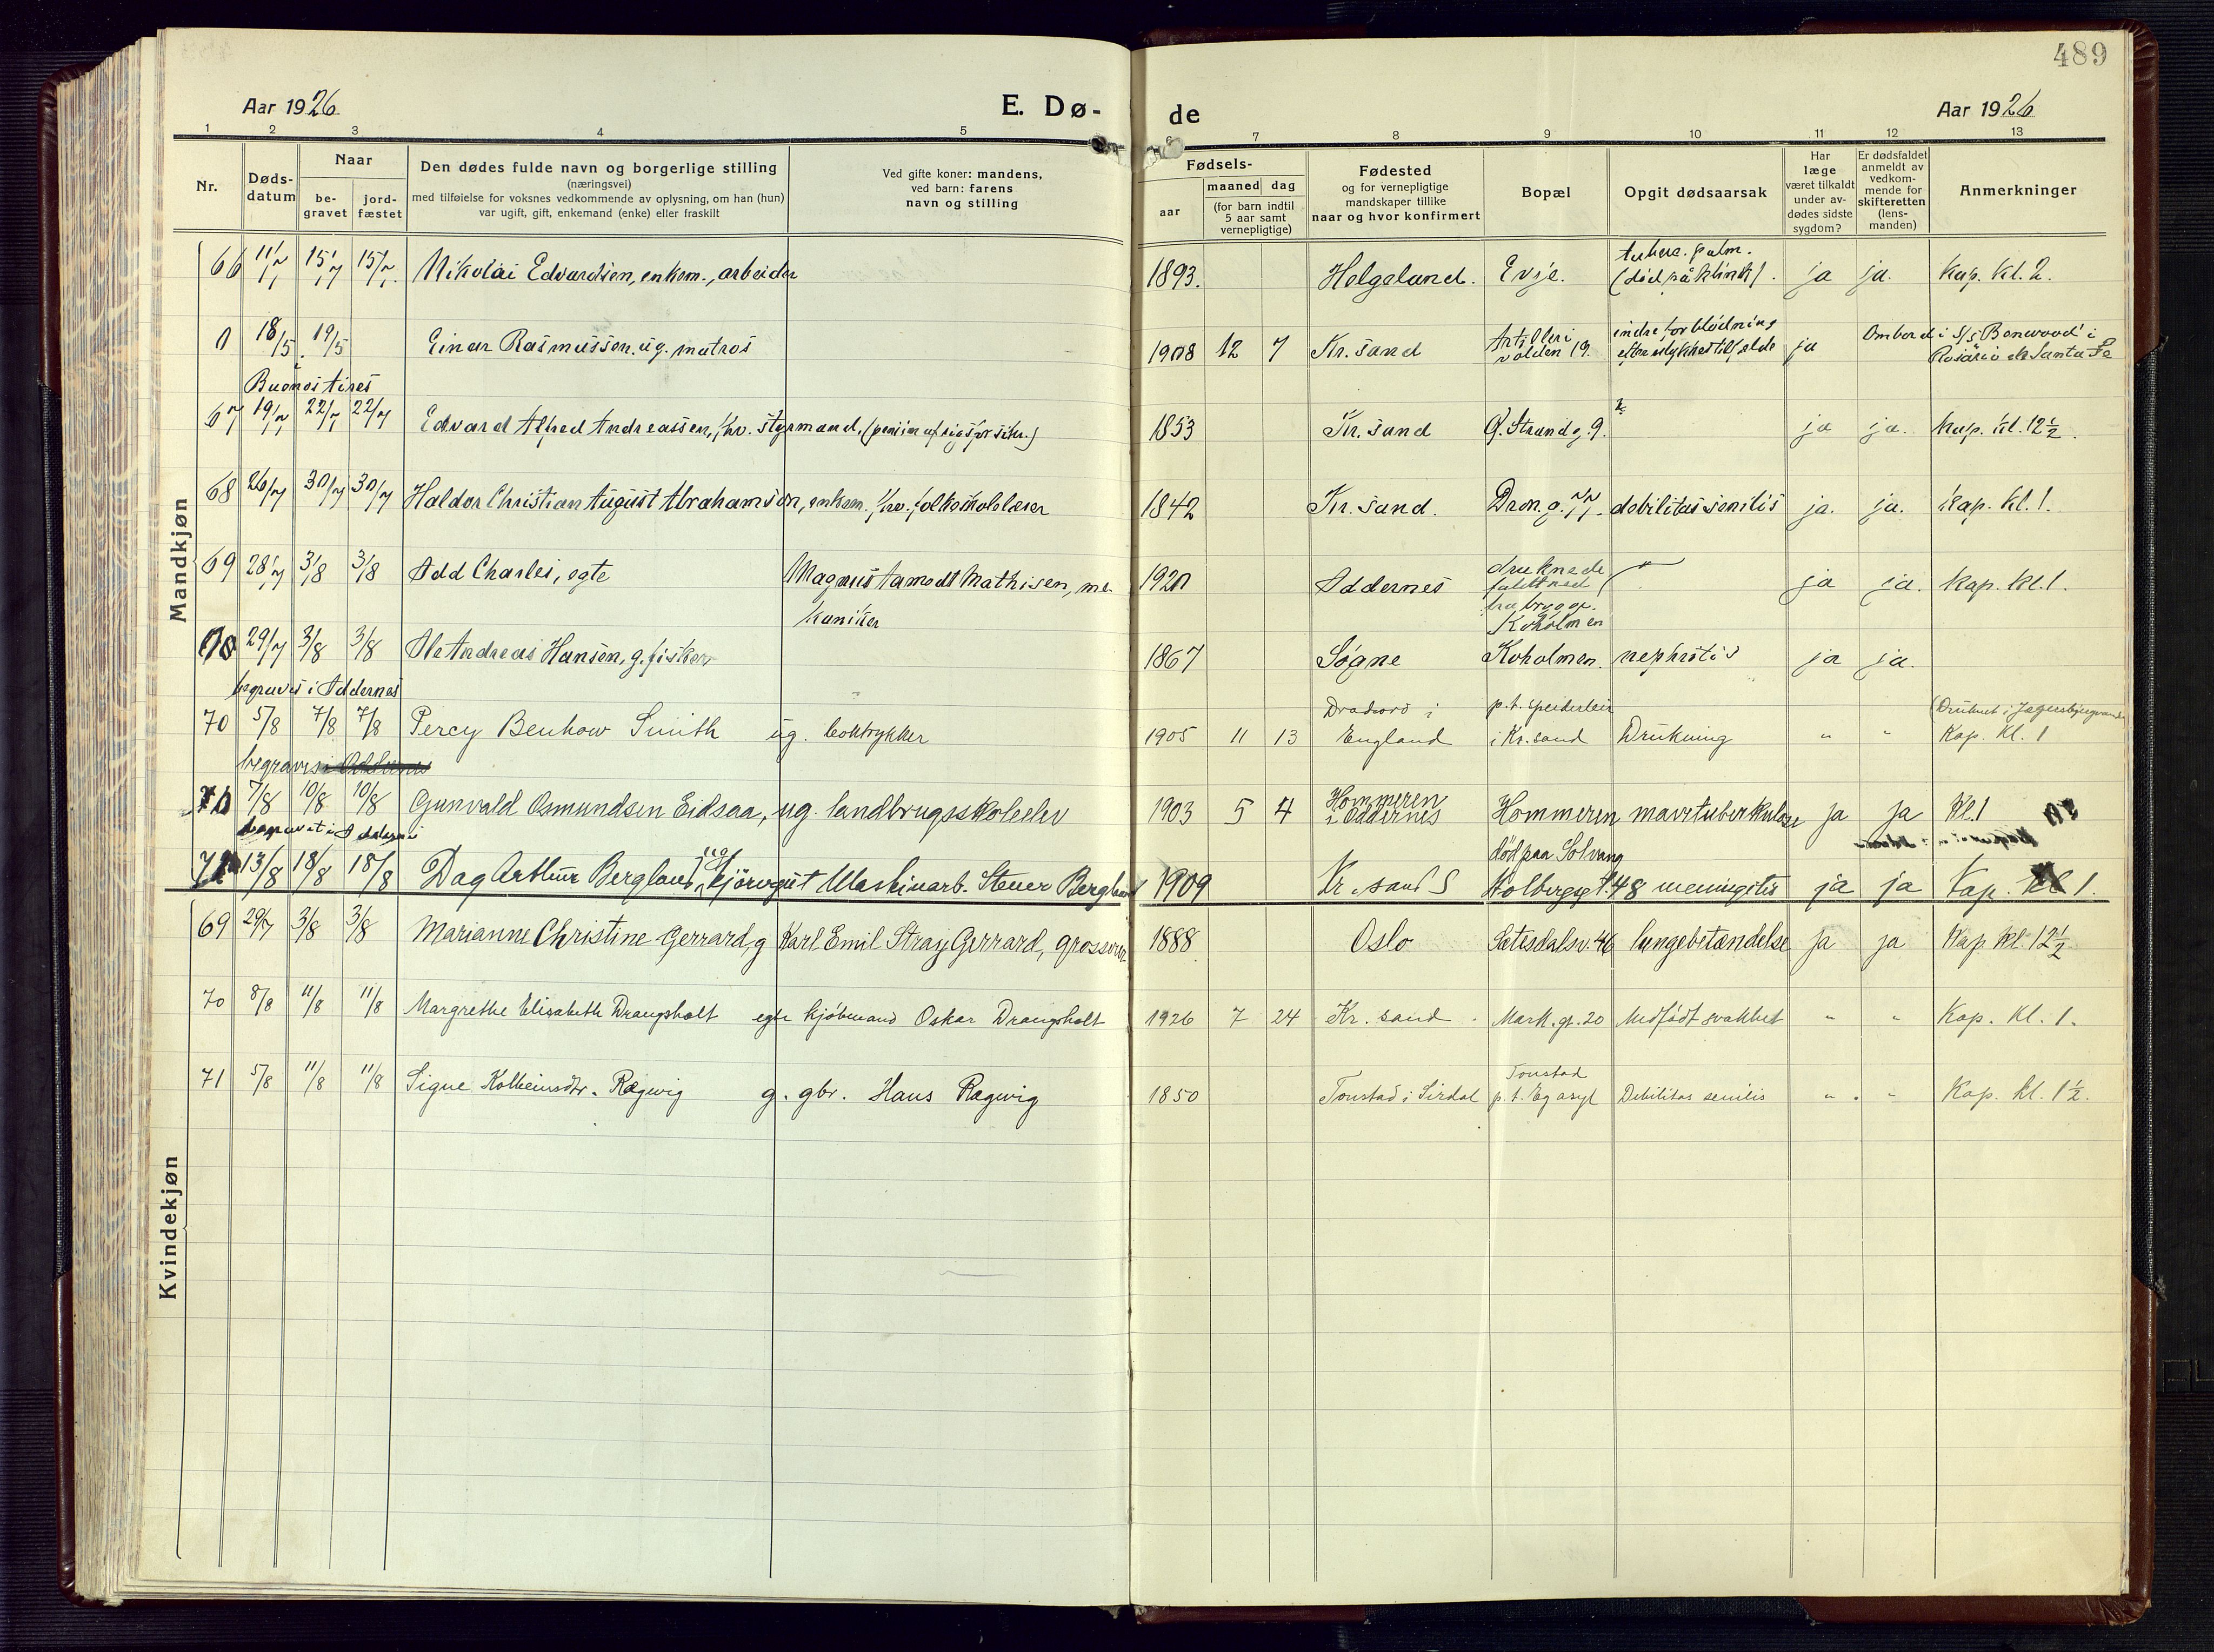 489
Aar 1926
E. Dø-
de
Aar 1926
1 2 3 4 5 6 7 8 9 10 11 12 13
Nr.
Døds-
datum
Naar
be-
gravet
jord-
fæstet
Den dødes fulde navn og borgerlige stilling
(næringsvei)
med tilføielse for voksnes vedkommende av oplysning, om han (hun)
var ugift, gift, enkemand (enke) eller fraskilt
Ved gifte koner: mandens,
ved barn: farens
navn og stilling
Fødsels-
aar
maaned dag
(for barn indtil
5 aar samt
vernepligtige)
Fødested
og for vernepligtige
mandskaper tillike
naar og hvor konfirmert
Bopæl
Opgit dødsaarsak
Har
læge
været tilkaldt
under av-
dødes sidste
sygdom?
Er dødsfaldet
anmeldt av
vedkom-
mende for
skifteretten
(lens-
manden)
Anmerkninger
Mandkjøn
66 11/7 15/7 15/7 Nikolai Edvardsen, enkem., arbeider 1893. Helgeland. Evje. tuberc. pulm. ja ja. Kap. kl. 2.
0 18/5 19/5 Einar Rasmussen, ug. matros 1908 12 7 Kr.sand Artilleri indre forblødning ja Ombord i S/S Benwood i
volden 19. efter ulykkestilfælde Rosário de Santa Fe
i Buenos Aires
67 19/7 22/7 22/7 Edvard Alfred Andreassen, fhv. styrmand, 1853 Kr.sand Ø. Strandg. 9. ja ja. Kap. kl. 12½.
68 26/7 30/7 30/7 Haldor Christian August Abrahamson, enkem. fhv. folkeskolelærer 1842 Kr.sand. Dron. g. 77. debilitas senilis ja. ja. Kap. kl. 1.
69 28/7 3/8 3/8 Odd Charles, egte Magnus Mathisen, me- 1920 Oddernes druknede ja ja. Kap. kl. 1.
kaniker
fra brygge.
Koholmen
29/7 3/8 3/8 Ole Andreas Hansen, g. fisker 1867 Søgne Koholmen. nephritis ja ja.
begraves i Oddernes
70 5/8 7/8 7/8 Percy Benhow Smith ug. boktrykker 1905 11 13 England p.t. speiderleir i Kr.sand Drukning " " Kap. Kl. 1
begraves i Oddernes
7/8 10/8 10/8 Gunvald Osmundsen Eidsaa, ug. landbrugsskoleelev 1903 5 4 Hommeren i Oddernes Hommeren mavetuberkulose ja ja Kl. 1
begravet i Oddernes
død paa Solvang
13/8 18/8 18/8 Dag Arthur Bergland, ug. kjøregut Maskinarb. Stener Bergland 1909 Kr.sand S Holbergsgt. 48 meningitis ja ja Kap. kl 1.
Kvindekjøn
69 29/7 3/8 3/8 Marianne Christine Gerrard, g Karl Emil Stray Gerrard, grosserer 1888 Oslo Sætesdalsv. 46 lungebetændelse ja ja Kap kl. 12½
70 8/8 11/8 11/8 Margrethe Elisabeth Drangsholt egte kjøbmand Oskar Drangsholt 1926 7 24 Kr.sand Mark. gt. 20 Medfødt svakhet " " Kap. Kl. 1.
71 5/8 11/8 11/8 Signe Kolbeinsdtr. Rægevig g. gbr. Hans Rægevig 1850 Tonstad i Sirdal Tonstad p.t. Eg asyl Debilitas senilis " " Kap. kl. 1½.